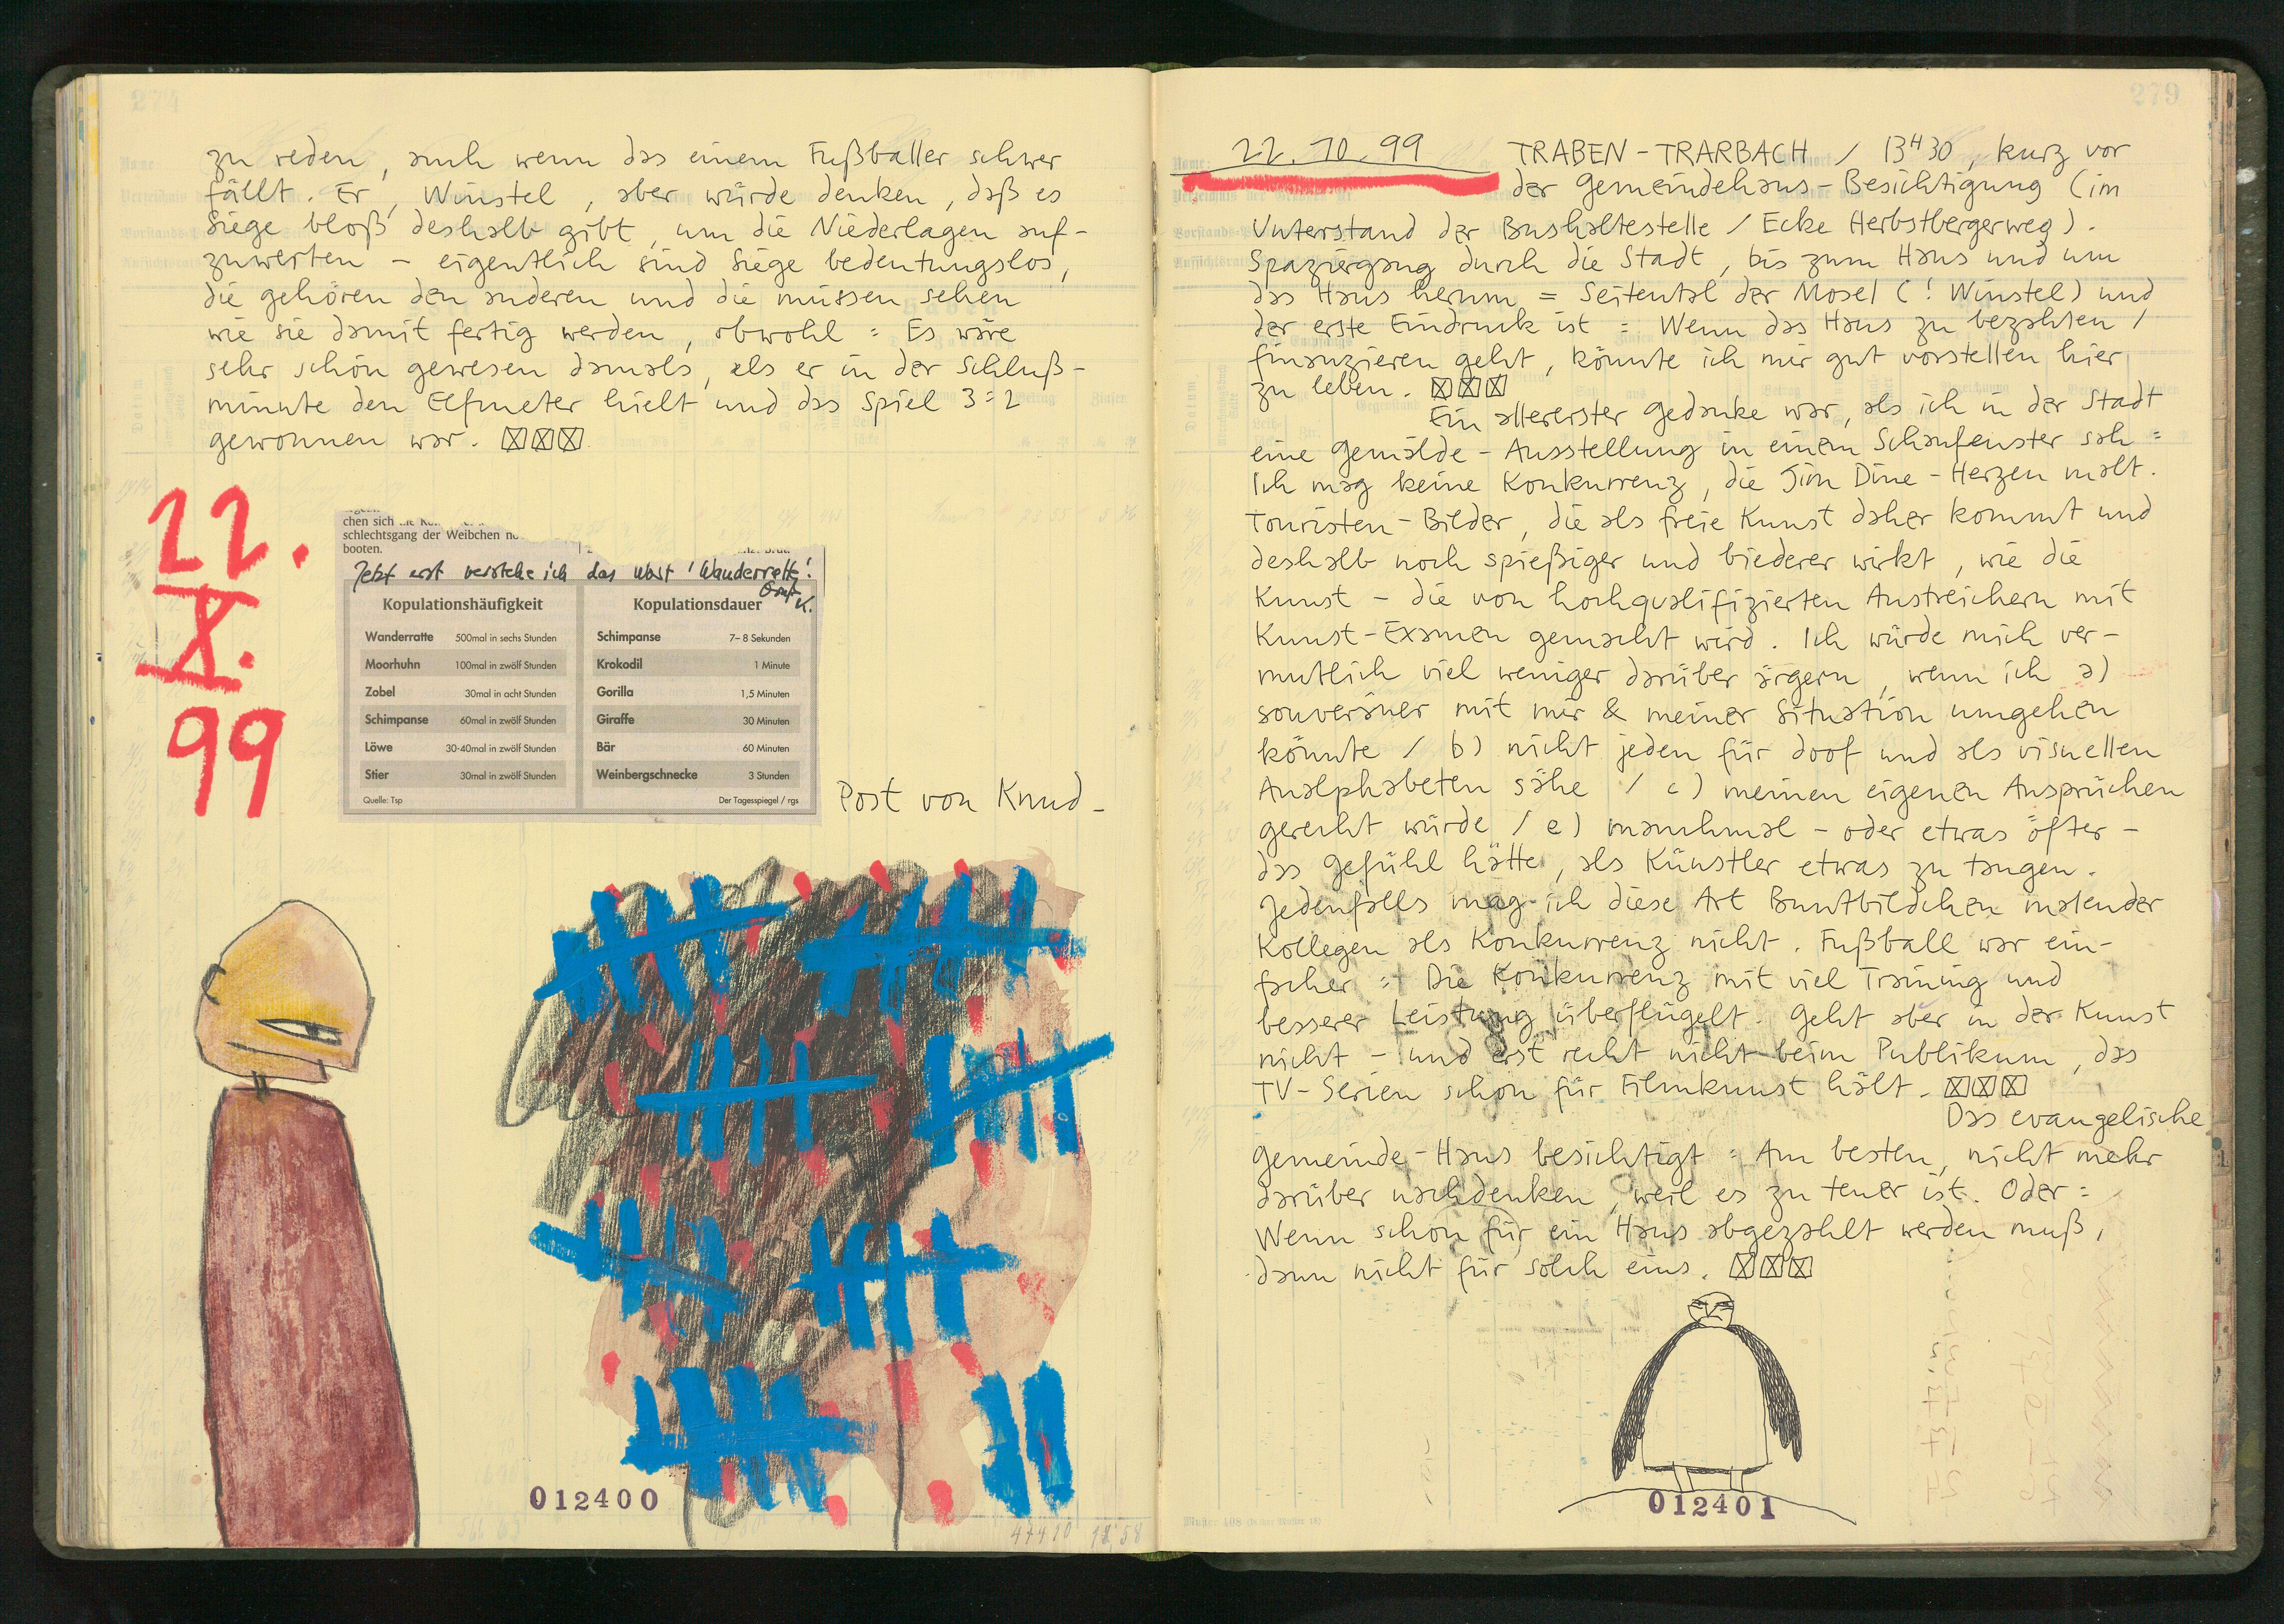 274
zu reden, auch wenn das einem Fußballer schwer
fällt. Er, Winstel, aber würde denken, daß es
Siege bloß deshalb gibt, um die Niederlagen auf-
zuwerten – eigentlich sind Siege bedeutungslos,
die gehören den anderen und die müssen sehen
wie sie damit fertig werden, obwohl : Es wäre
sehr schön gewesen damals, als er in der Schluß-
minute den Elfmeter hielt und das Spiel 3:2
gewonnen war. ☒☒☒
22.
X.
99
chen sich
schlechtsgang der Weibchen
booten.
Jetzt erst verstehe ich das Wort 'Wanderratte'!
Gruß K.
Kopulationshäufigkeit
Wanderratte 500mal in sechs Stunden
Moorhuhn 100mal in zwölf Stunden
Zobel 30mal in acht Stunden
Schimpanse 60mal in zwölf Stunden
Löwe 30-40mal in zwölf Stunden
Stier 30mal in zwölf Stunden
Quelle: Tsp
Kopulationsdauer
Schimpanse 7–8 Sekunden
Krokodil 1 Minute
Gorilla 1,5 Minuten
Giraffe 30 Minuten
Bär 60 Minuten
Weinbergschnecke 3 Stunden
Der Tagesspiegel / rgs
Post von Knud –
012400
279
22.10.99 TRABEN-TRARBACH / 13H30, kurz vor
der Gemeindehaus-Besichtigung (im
Unterstand der Bushaltestelle / Ecke Herbstbergerweg).
Spaziergang durch die Stadt, bis zum Haus und um
das Haus herum = Seitental der Mosel (! Winstel) und
der erste Eindruck ist : Wenn das Haus zu bezahlen /
finanzieren geht, könnte ich mir gut vorstellen hier
zu leben. ☒☒☒
Ein allererster Gedanke war, als ich in der Stadt
eine Gemälde-Ausstellung in einem Schaufenster sah :
Ich mag keine Konkurrenz, die Jim Dine-Herzen malt.
Touristen-Bilder, die als freie Kunst daher kommt und
deshalb noch spießiger und biederer wirkt, wie die
Kunst – die von hochqualifizierten Anstreichern mit
Kunst-Examen gemacht wird. Ich würde mich ver-
mutlich viel weniger darüber ärgern, wenn ich a)
souveräner mit mir & meiner Situation umgehen
könnte / b) nicht jeden für doof und als visuellen
Analphabeten sähe / c) meinen eigenen Ansprüchen
gerecht würde / e) manchmal – oder etwas öfter –
das Gefühl hätte, als Künstler etwas zu taugen.
Jedenfalls mag ich diese Art Buntbildchen malender
Kollegen als Konkurrenz nicht. Fußball war ein-
facher : Die Konkurrenz mit viel Training und
besserer Leistung überflügelt. Geht aber in der Kunst
nicht – und erst recht nicht beim Publikum, das
TV-Serien schon für Filmkunst hält. ☒☒☒
Das evangelische
Gemeinde-Haus besichtigt : Am besten, nicht mehr
darüber nachdenken, weil es zu teuer ist. Oder :
Wenn schon für ein Haus abgezahlt werden muß,
dann nicht für solch eins. ☒☒☒
012401